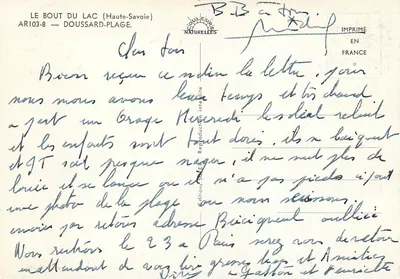 LE BOUT DU LAC (Haute-Savoie)
AR103-8 - DOUSSARD-PLAGE.
COULEURS
NATURELLES
IMPRIMÉ
EN
FRANCE
B.B
Cher
Bien reçu ce matin la lettre, pour
nous nous avons beau temps et très chaud
a part un Orage Mercredi le soleil reluit
et les enfants sont tout dorés, ils se baignent
et JT sait presque nager, il ne veut plus de
bouée et se lance ou il n'a pas pieds ci joint
une photo de la plage ou nous
envoies par retour adresse oubliée
Nous rentrons le 23 a Paris serez vous
en attendant de vous lire grosses bises et Amitiés
a Gaston et Henriette